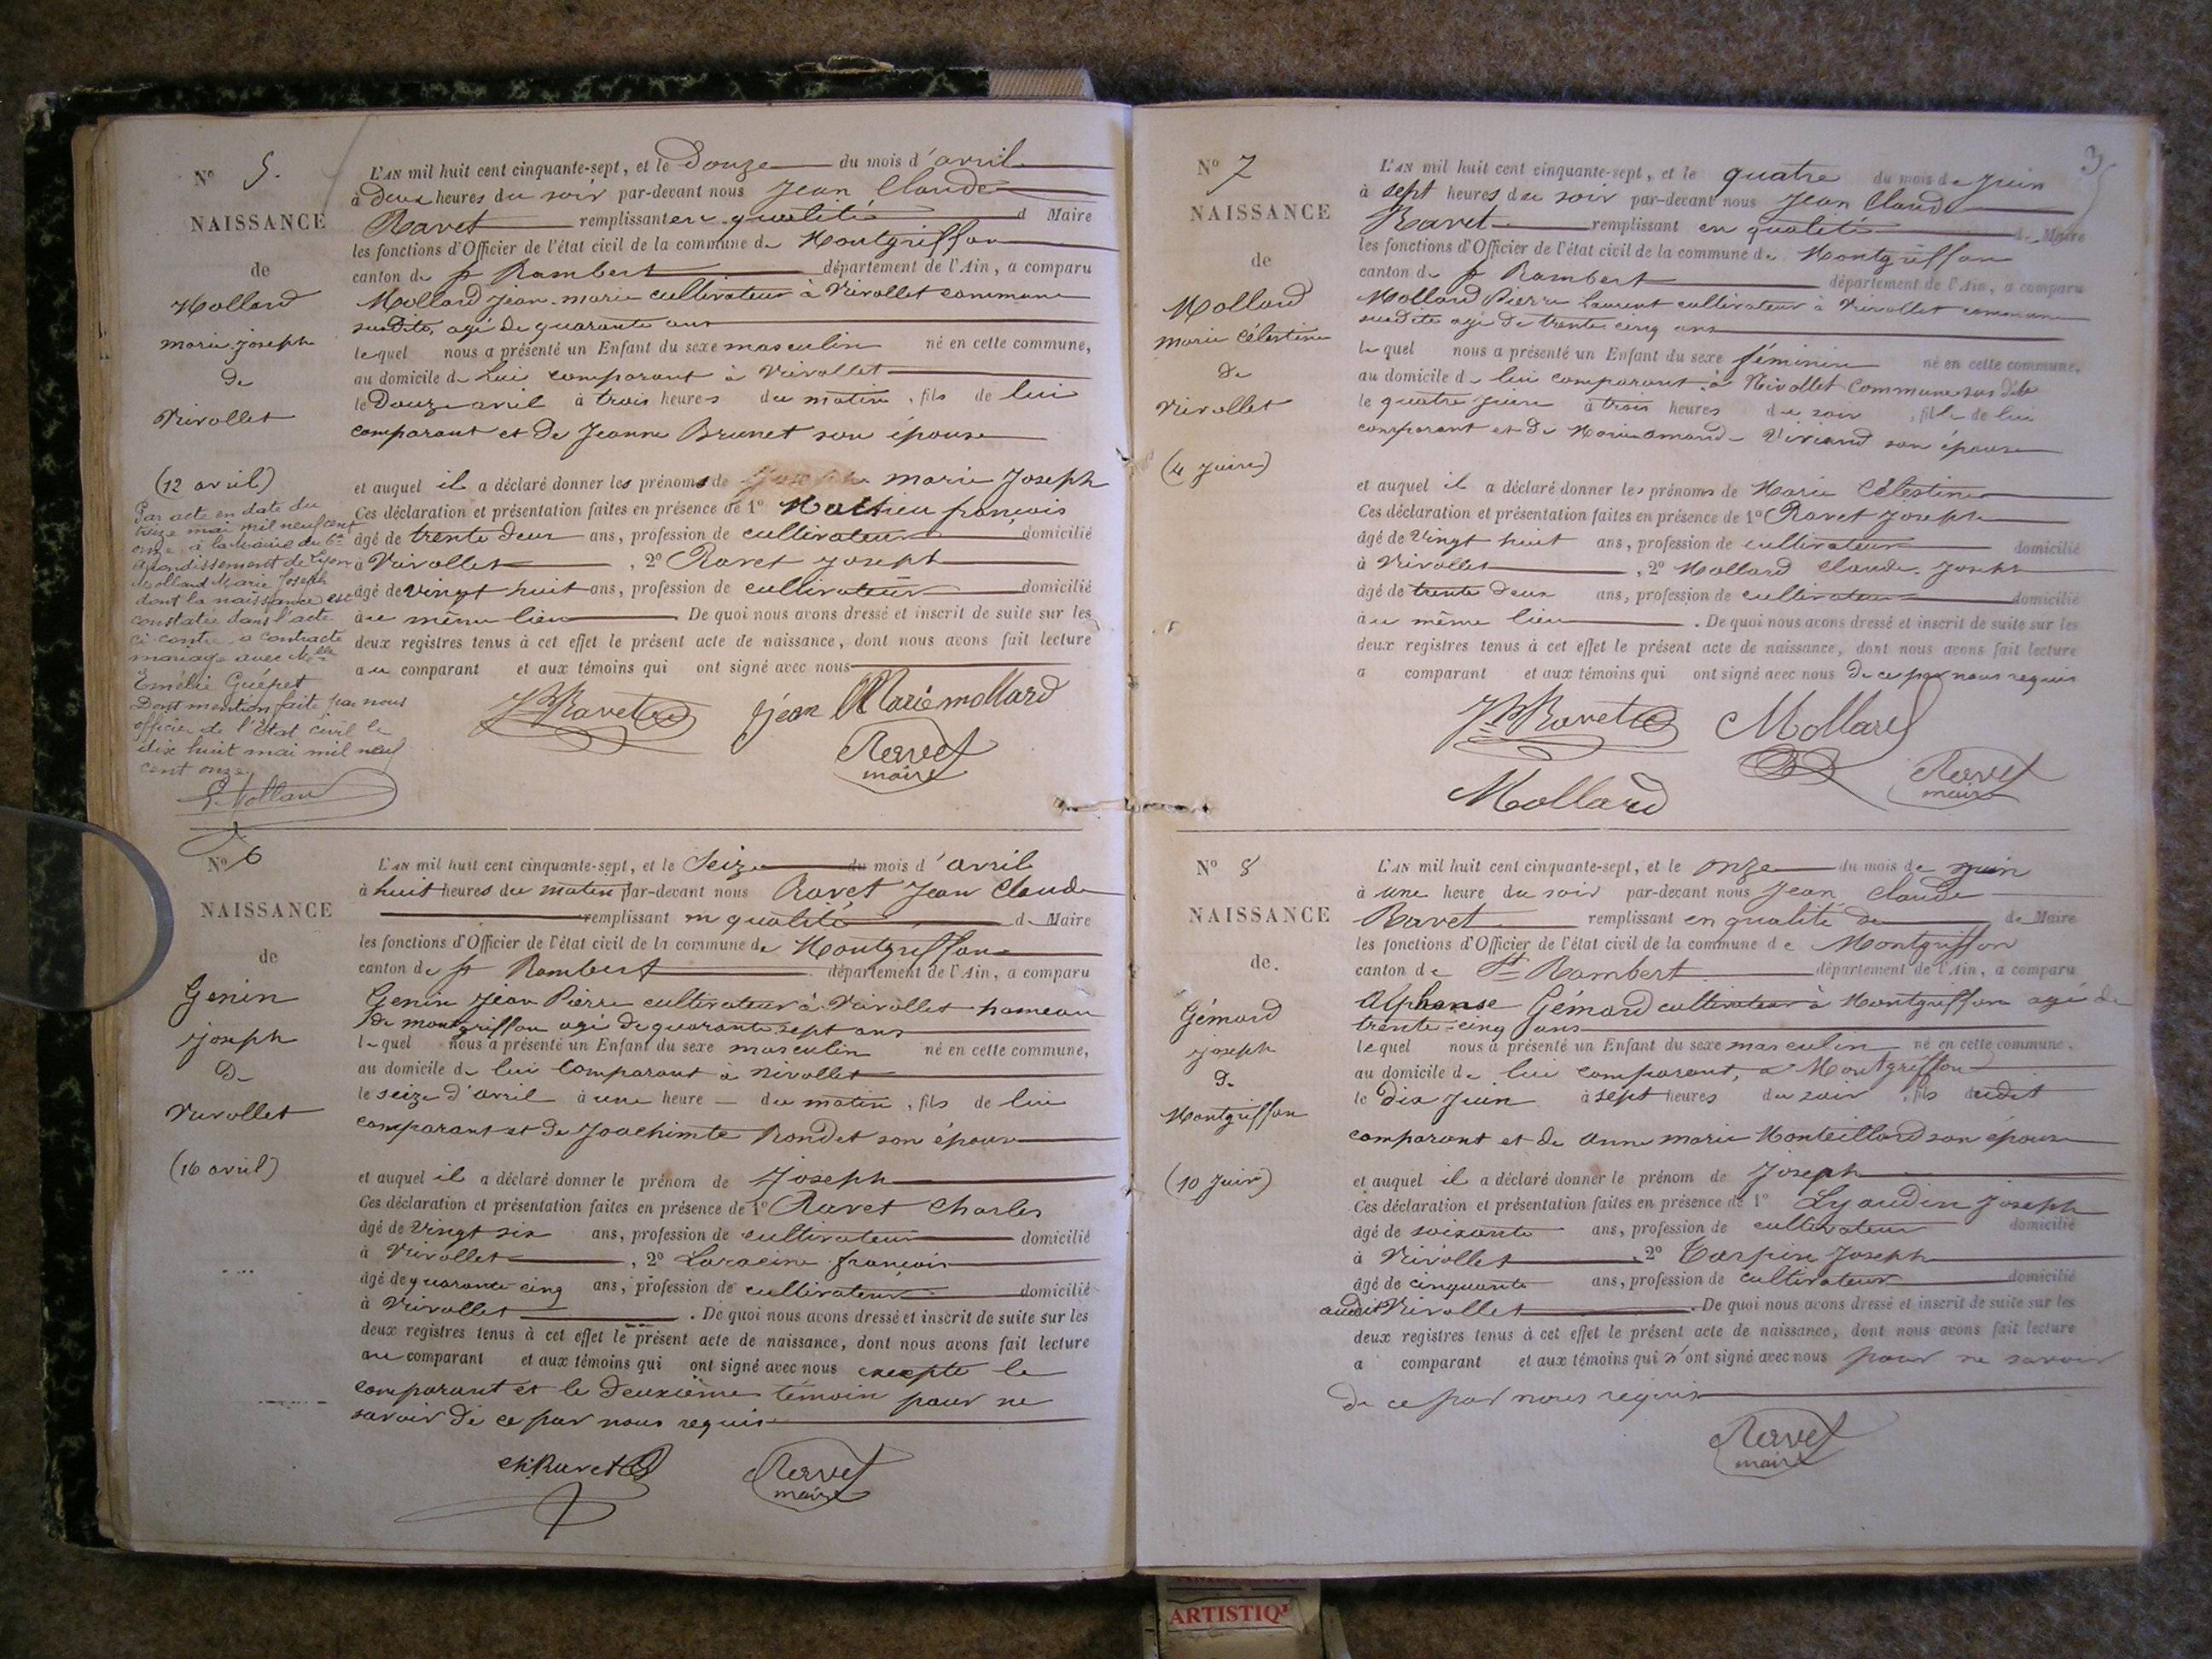 N° 5.
NAISSANCE
de
Mollard
marie joseph
de
Nivollet
(12 avril)
Par acte en date du
treize mai mil neuf cent
onze à la Mairie du 6e
arrondissement de Lyon
Mollard Marie Joseph
dont la naissance est
constatée dans l'acte
ci-contre a contracté
mariage avec Melle
Emélie Guépet
Dont mention faite par nous
officier de l'Etat civil le
dix huit mai mil neuf
cent onze.
L'AN mil huit cent cinquante-sept, et le Douze du mois d'avril
à Deux heures du soir par-devant nous Jean Claude
Ravet remplissant en qualité d Maire
les fonctions d'Officier de l'état civil de la commune de Montgriffon
canton de St Rambert département de l'Ain, a comparu
Mollard Jean-marie cultivateur à Nivollet commune
susdite, agé de quarante ans
lequel nous a présenté un Enfant du sexe masculin né en cette commune,
au domicile de Lui comparant à Nivollet
le Douze avril à trois heures du matin, fils de lui
comparant et de Jeanne Brunet son épouse
et auquel il a déclaré donner les prénoms de marie Joseph
Ces déclaration et présentation faites en présence de 1° Mathieu françois
âgé de trente deux ans, profession de cultivateur domicilié
à Nivollet, 2° Ravet Joseph
âgé de vingt huit ans, profession de cultivateur domicilié
au même lieu De quoi nous avons dressé et inscrit de suite sur les
deux registres tenus à cet effet le présent acte de naissance, dont nous avons fait lecture
au comparant et aux témoins qui ont signé avec nous
Jh Ravet Jean Marie mollard
Ravet
maire
N° 6
NAISSANCE
de
Genin
Joseph
De
Nivollet
(16 avril)
L'AN mil huit cent cinquante-sept, et le Seize du mois d'avril
à huit heures du matin par-devant nous Ravet Jean Claude
remplissant en qualité de Maire
les fonctions d'Officier de l'état civil de la commune de Montgriffon
canton de St Rambert département de l'Ain, a comparu
Genin Jean Pierre cultivateur à Nivollet hameau
de montgriffon agé de quarante sept ans
lequel nous a présenté un Enfant du sexe masculin né en cette commune,
au domicile de lui Comparant à Nivollet
le seize d'avril à une heure du matin, fils de lui
comparant et de Joachimte Rondet son épouse
et auquel il a déclaré donner le prénom de Joseph
Ces déclaration et présentation faites en présence de 1° Ravet Charles
âgé de vingt six ans, profession de cultivateur domicilié
à Nivollet, 2° Laracine françois
âgé de quarante cinq ans, profession de cultivateur domicilié
à Nivollet. De quoi nous avons dressé et inscrit de suite sur les
deux registres tenus à cet effet le présent acte de naissance, dont nous avons fait lecture
au comparant et aux témoins qui ont signé avec nous excepté le
comparant et le deuxième témoin pour ne
savoir de ce par nous requis
ch. Ravet Ravet
maire
3
N° 7
NAISSANCE
de
Mollard
Marie Célestine
de
Nivollet
(4 Juin)
L'AN mil huit cent cinquante-sept, et le quatre du mois de Juin
à sept heures du soir par-devant nous Jean Claude
Ravet remplissant en qualité de Maire
les fonctions d'Officier de l'état civil de la commune de Montgriffon
canton de St Rambert département de l'Ain, a comparu
Mollard Pierre Laurent cultivateur à Nivollet commune
susdite agé de trente cinq ans
lequel nous a présenté un Enfant du sexe féminin né en cette commune,
au domicile de lui comparant à Nivollet Commune sus dite
le quatre Juin à trois heures du soir, fille de lui
comparant et de Marie amande Viviand son épouse
et auquel il a déclaré donner les prénoms de Marie Célestine
Ces déclaration et présentation faites en présence de 1° Ravet Joseph
âgé de Vingt huit ans, profession de cultivateur domicilié
à Nivollet, 2° Mollard Claude Joseph
âgé de trente deux ans, profession de cultivateur domicilié
au même lieu. De quoi nous avons dressé et inscrit de suite sur les
deux registres tenus à cet effet le présent acte de naissance, dont nous avons fait lecture
a comparant et aux témoins qui ont signé avec nous De ce par nous requis
Jh Ravet Mollard
Mollard Ravet
maire
N° 8
NAISSANCE
de.
Gémard
Joseph
De
Montgriffon
(10 Juin)
L'AN mil huit cent cinquante-sept, et le onze du mois de juin
à une heure du soir par-devant nous Jean Claude
Ravet remplissant en qualité de de Maire
les fonctions d'Officier de l'état civil de la commune de Montgriffon
canton de St Rambert département de l'Ain, a comparu
Alphonse Gémard cultivateur à Montgriffon agé de
trente-cinq ans
lequel nous a présenté un Enfant du sexe masculin né en cette commune,
au domicile de lui comparant, à Montgriffon
le dix Juin à sept heures du soir, fils dudit
comparant et de anne marie Monteillard son épouse
et auquel il a déclaré donner le prénom de Joseph
Ces déclaration et présentation faites en présence de 1° Lyaudin Joseph
âgé de soixante ans, profession de cultivateur domicilié
à Nivollet, 2° Tarpin Joseph
âgé de cinquante ans, profession de cultivateur domicilié
audit Nivollet. De quoi nous avons dressé et inscrit de suite sur les
deux registres tenus à cet effet le présent acte de naissance, dont nous avons fait lecture
a comparant et aux témoins qui n'ont signé avec nous pour ne savoir
de ce par nous requis
Ravet
maire
ARTISTIQ